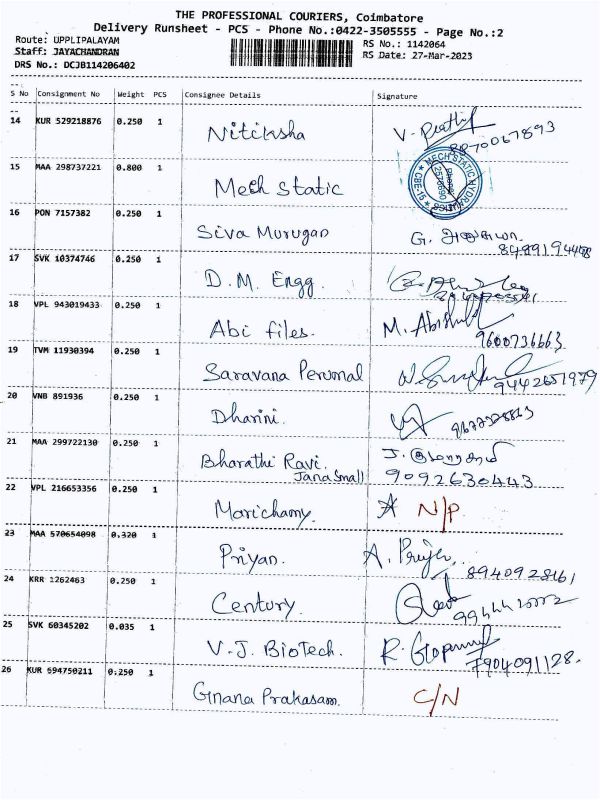 THE PROFESSIONAL COURIERS, Coimbatore
Delivery Runsheet - PCS - Phone No.:0422-3505555 - Page No.:2
Route: UPPLIPALAYAM
RS No.: 1142064
Staff: JAYACHANDRAN
RS Date: 27-Mar-2023
DRS No.: DCJB114206402
S No Consignment No Weight PCS Consignee Details Signature
14 KUR 529218876 0.250 1 Nitiksha V. 8870067893
15 MAA 298737221 0.800 1 Mech Static MECH STATIC
16 PON 7157382 0.250 1 Siva Murugan G. 8489194458
17 SVK 10374746 0.250 1 D.M. Engg.
18 VPL 943019433 0.250 1 Abi files. M. 9600736663
19 TVM 11930394 0.250 1 Saravana Perumal 9442651979
20 VNB 891936 0.250 1 Dharini.
21 MAA 299722130 0.250 1 Bharathi Ravi.
Jana Small 9092630443
22 VPL 216653356 0.250 1 Marichamy. N/P
23 MAA 570654098 0.320 1 Priyan. A. 8940928161
24 KRR 1262463 0.250 1 Century.
25 SVK 60345202 0.035 1 V.J. BioTech. R. 7904091128.
26 KUR 694750211 0.250 1 Gnana Prakasam. C/N